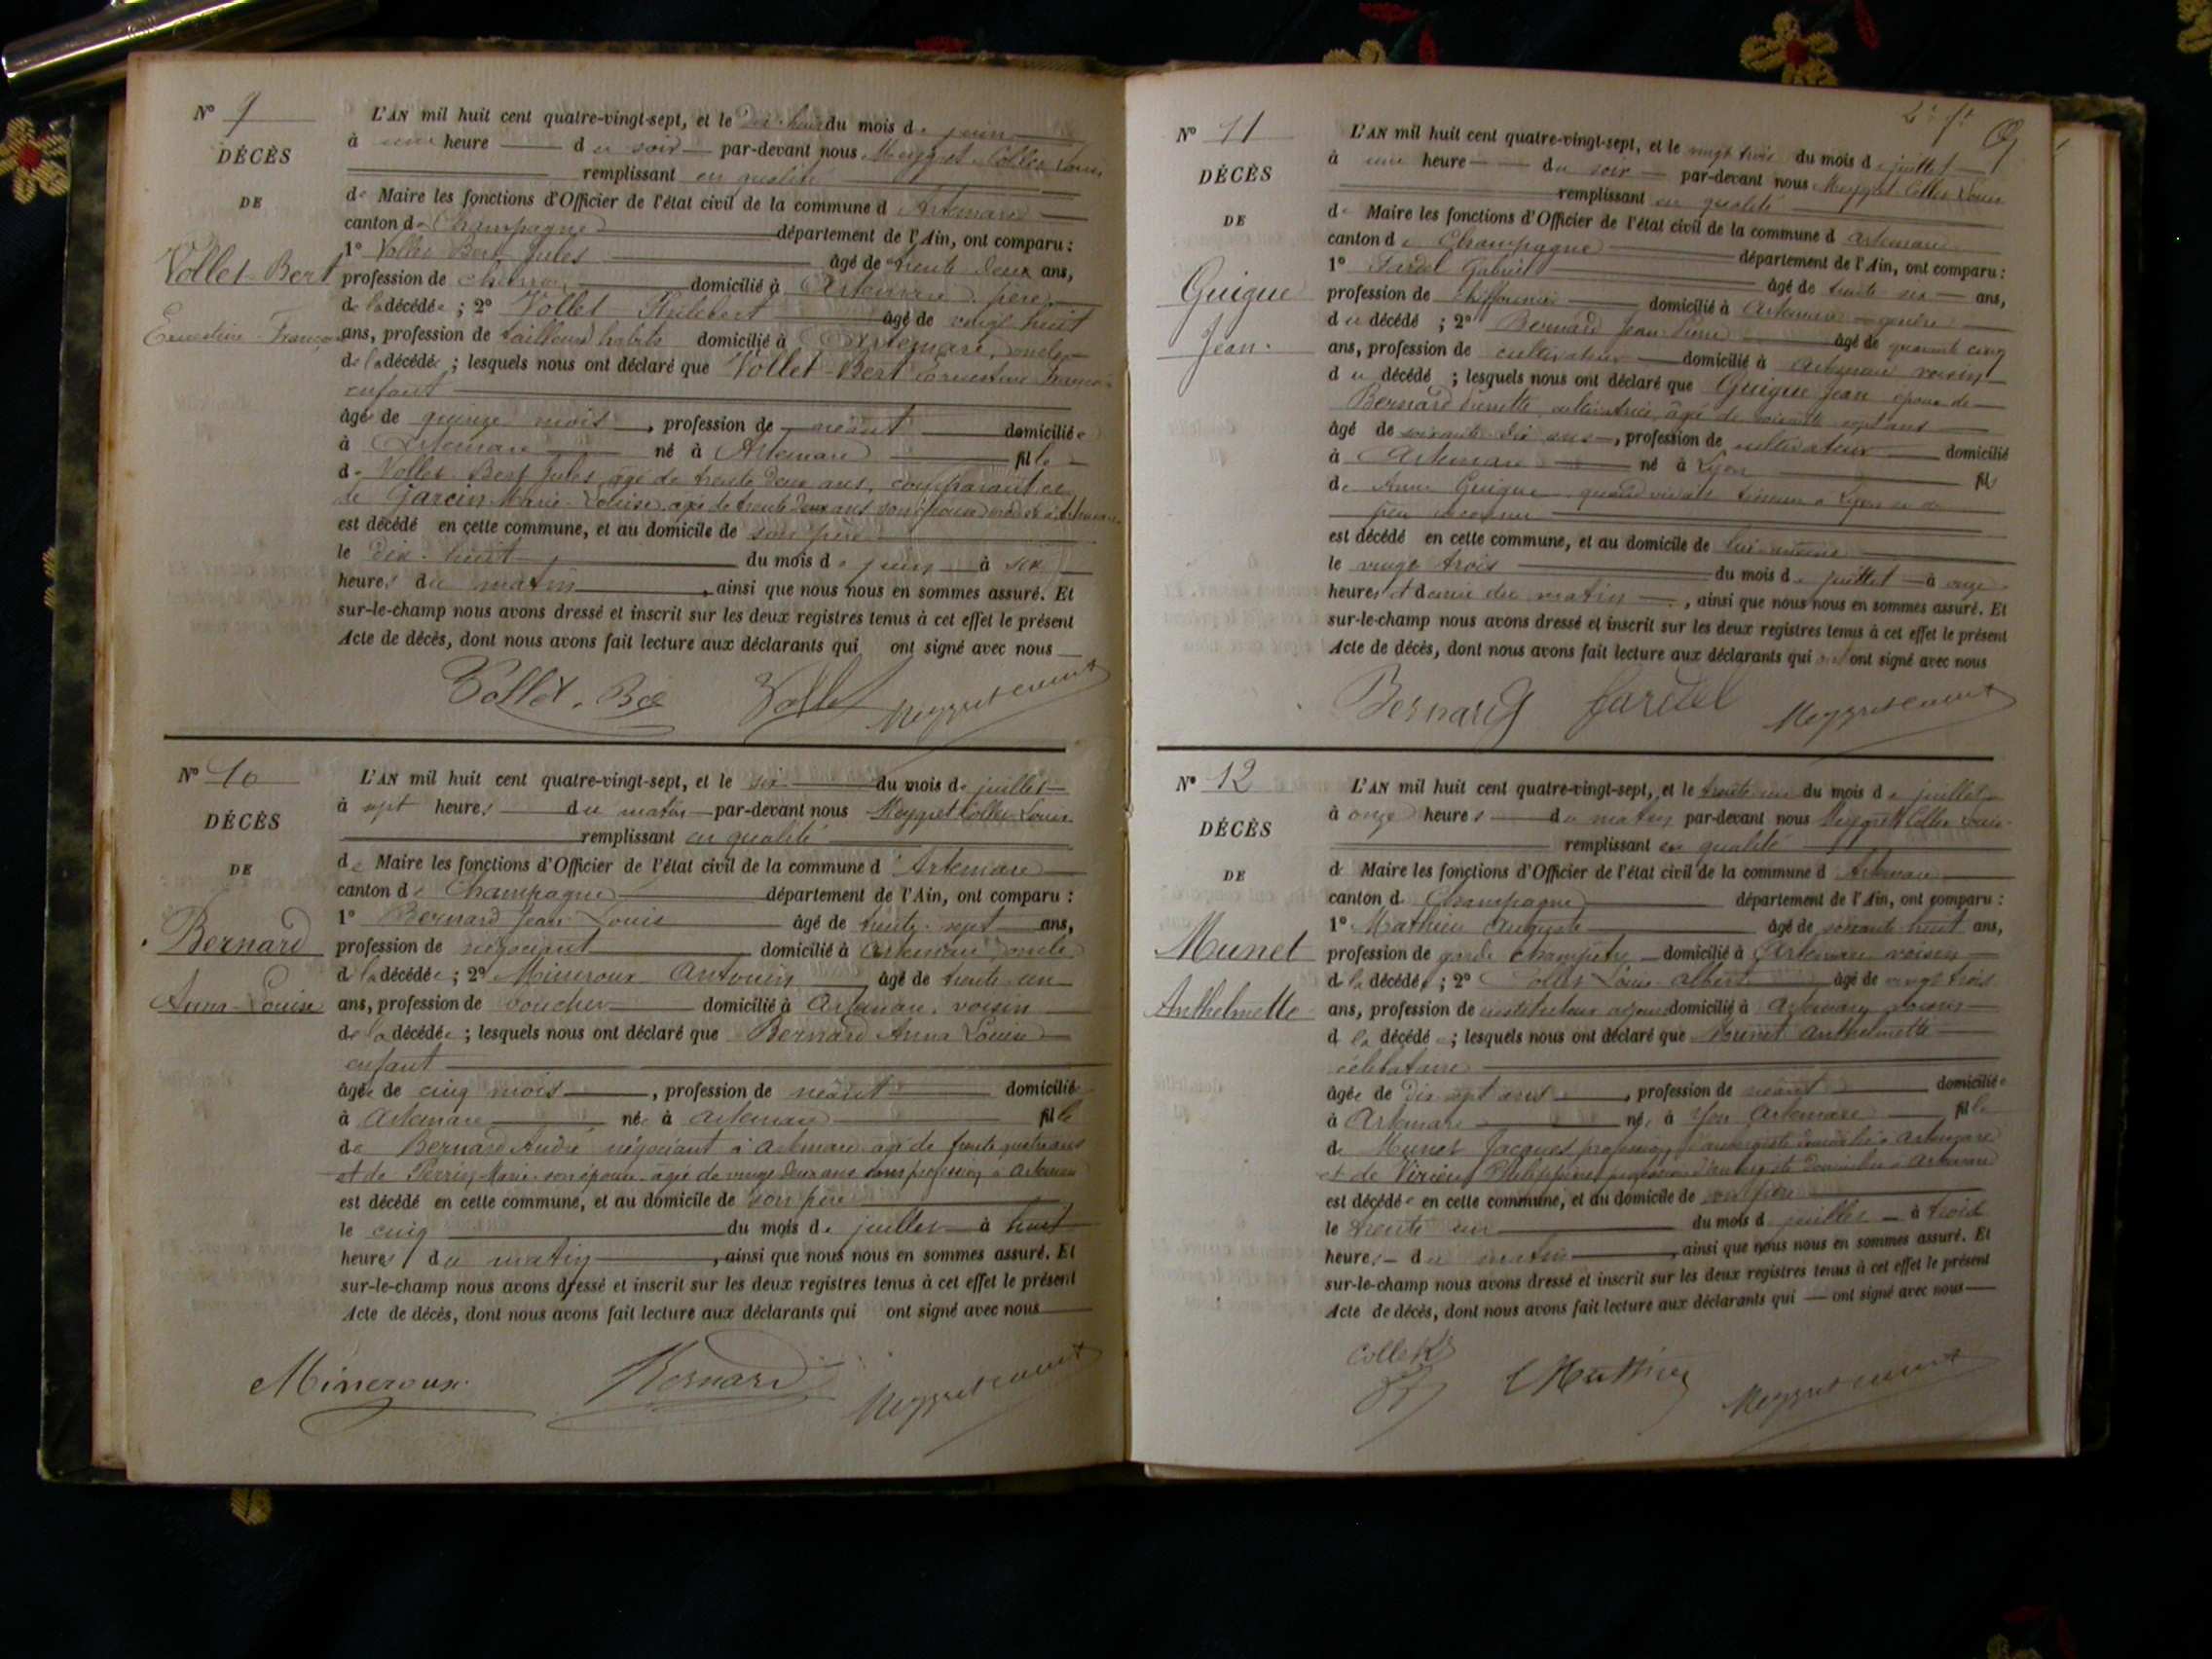 N° 9
DÉCÈS
DE
Vollet-Bert
Ernestine Françoise
L'AN mil huit cent quatre-vingt-sept, et le dix-huit du mois de juin
à une heure du soir par-devant nous Meygret Collet Louis
remplissant en qualité
de Maire les fonctions d'Officier de l'état civil de la commune d Artemare
canton de Champagne département de l'Ain, ont comparu :
1° Vollet Bert Jules âgé de trente deux ans,
profession de domicilié à Artemare père
de la décédée ; 2° Vollet Philibert âgé de vingt huit
ans, profession de tailleur d'habits domicilié à Artemare, oncle
de la décédée ; lesquels nous ont déclaré que Vollet-Bert Ernestine Françoise
enfant
âgée de quinze mois, profession de néant domiciliée
à Artemare né à Artemare fille
de Vollet Bert Jules âgé de trente deux ans, comparant et
de Garcin Marie-Louise, agée de trente deux ans son épouse
est décédé en cette commune, et au domicile de son père
le dix-huit du mois de juin à six
heures du matin, ainsi que nous nous en sommes assuré. Et
sur-le-champ nous avons dressé et inscrit sur les deux registres tenus à cet effet le présent
Acte de décès, dont nous avons fait lecture aux déclarants qui ont signé avec nous
Vollet Vollet Meygret
N° 10
DÉCÈS
DE
Bernard
Anna-Louise
L'AN mil huit cent quatre-vingt-sept, et le six du mois de juillet
à sept heures du matin par-devant nous Meygret Collet Louis
remplissant en qualité
de Maire les fonctions d'Officier de l'état civil de la commune d Artemare
canton de Champagne département de l'Ain, ont comparu :
1° Bernard Jean Louis âgé de trente-sept ans,
profession de négociant domicilié à Artemare oncle
de la décédée ; 2° Mineroux Antonin âgé de trente un
ans, profession de boucher domicilié à Artemare, voisin
de la décédée ; lesquels nous ont déclaré que Bernard Anna Louise
enfant
âgée de cinq mois, profession de néant domiciliée
à Artemare née à Artemare fille
de Bernard André négociant à Artemare agé de trente quatre ans
et de Perrin Marie son épouse agée de vingt deux ans sans profession à Artemare
est décédé en cette commune, et au domicile de son père
le cinq du mois de juillet à huit
heures du matin, ainsi que nous nous en sommes assuré. Et
sur-le-champ nous avons dressé et inscrit sur les deux registres tenus à cet effet le présent
Acte de décès, dont nous avons fait lecture aux déclarants qui ont signé avec nous
Mineroux Bernard Meygret
N° 11
DÉCÈS
DE
Guigue
Jean
L'AN mil huit cent quatre-vingt-sept, et le vingt trois du mois de juillet
à une heure du soir par-devant nous Meygret Collet Louis
remplissant en qualité
de Maire les fonctions d'Officier de l'état civil de la commune d Artemare
canton de Champagne département de l'Ain, ont comparu :
1° Gabriel âgé de trente six ans,
profession de chiffonnier domicilié à Artemare gendre
du décédé ; 2° Bernard Jean âgé de quarante cinq
ans, profession de cultivateur domicilié à Artemare voisin
du décédé ; lesquels nous ont déclaré que Guigue Jean époux de
Bernard Pierrette cultivatrice, âgée de soixante sept ans
âgé de soixante dix ans, profession de cultivateur domicilié
à Artemare né à Lyon fils
de Anne Guigue quand vivait à Lyon et de
père inconnu
est décédé en cette commune, et au domicile de lui-même
le vingt trois du mois de juillet à onze
heures et demie du matin, ainsi que nous nous en sommes assuré. Et
sur-le-champ nous avons dressé et inscrit sur les deux registres tenus à cet effet le présent
Acte de décès, dont nous avons fait lecture aux déclarants qui ont signé avec nous
Bernard Meygret
N° 12
DÉCÈS
DE
Munet
Anthelmette
L'AN mil huit cent quatre-vingt-sept, et le trente un du mois de juillet
à onze heures du matin par-devant nous Meygret Collet Louis
remplissant en qualité
de Maire les fonctions d'Officier de l'état civil de la commune d Artemare
canton de Champagne département de l'Ain, ont comparu :
1° Mathieu Auguste âgé de soixante huit ans,
profession de garde champêtre domicilié à Artemare voisin
de la décédée ; 2° Collet Louis Albert âgé de vingt trois
ans, profession de instituteur adjoint domicilié à Artemare voisin
de la décédée ; lesquels nous ont déclaré que Munet Anthelmette
célibataire
âgée de dix sept ans, profession de néant domiciliée
à Artemare née à Yon Artemare fille
de Munet Jacques profession d'aubergiste domicilié à Artemare
et de Virieu Philippine profession d'aubergiste domiciliée à Artemare
est décédée en cette commune, et au domicile de son père
le trente un du mois de juillet à trois
heures du matin, ainsi que nous nous en sommes assuré. Et
sur-le-champ nous avons dressé et inscrit sur les deux registres tenus à cet effet le présent
Acte de décès, dont nous avons fait lecture aux déclarants qui ont signé avec nous
Collet Mathieu Meygret